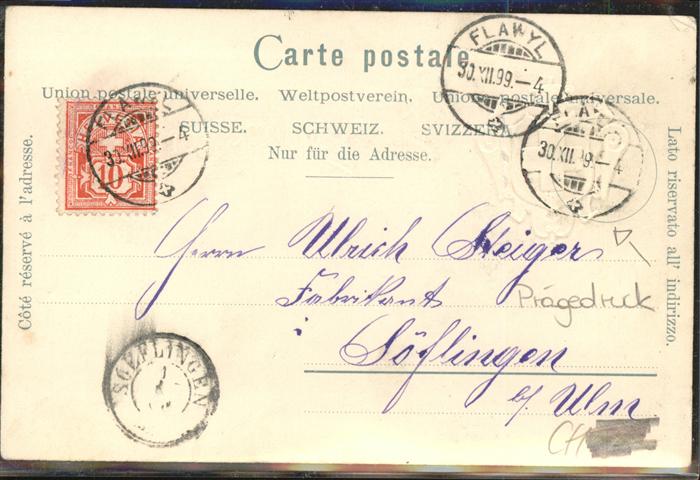 Carte postale
Union postale universelle. Weltpostverein. Unione postale universale.
SUISSE. SCHWEIZ. SVIZZERA.
Nur für die Adresse.
Côté réservé à l'adresse.
Lato riservato all' indirizzo.
FLAWYL
30.XII.99.–4
FLAWYL
30.XII.99.–4
30.XII.99.–4
10
Herrn Ulrich Steiger
Fabrikant
Prägedruck
Söflingen
b/ Ulm
SOEFLINGEN
CH